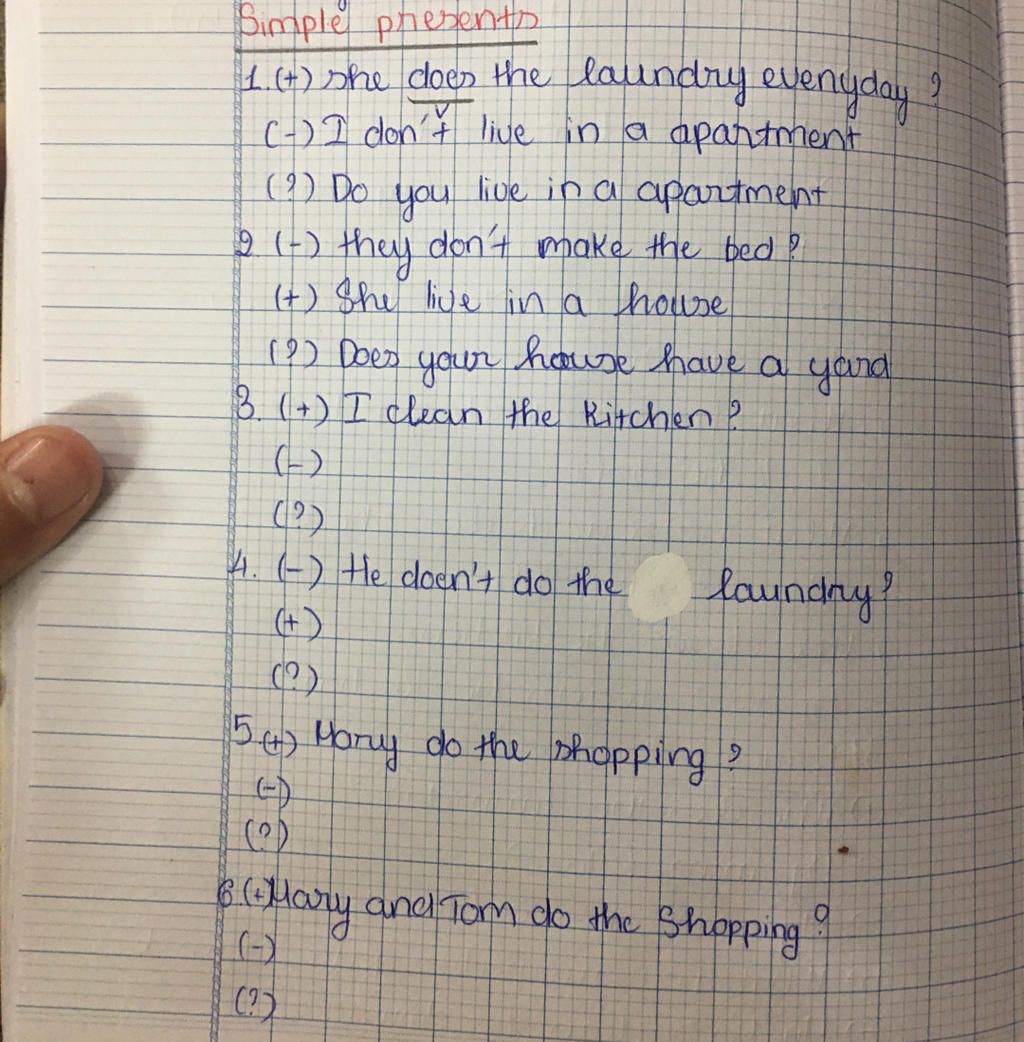 Simple presents
1. (+) she does the laundry everyday?
(-) I don't live in a apartment
(?) Do you live in a apartment
2 (-) they don't make the bed?
(+) She live in a house
(?) Does your house have a yard
3. (+) I clean the kitchen?
(-)
(?)
4. (-) He doen't do the laundry?
(+)
(?)
5. (+) Mary do the shopping?
(-)
(?)
6. (+) Mary and Tom do the Shopping?
(-)
(?)